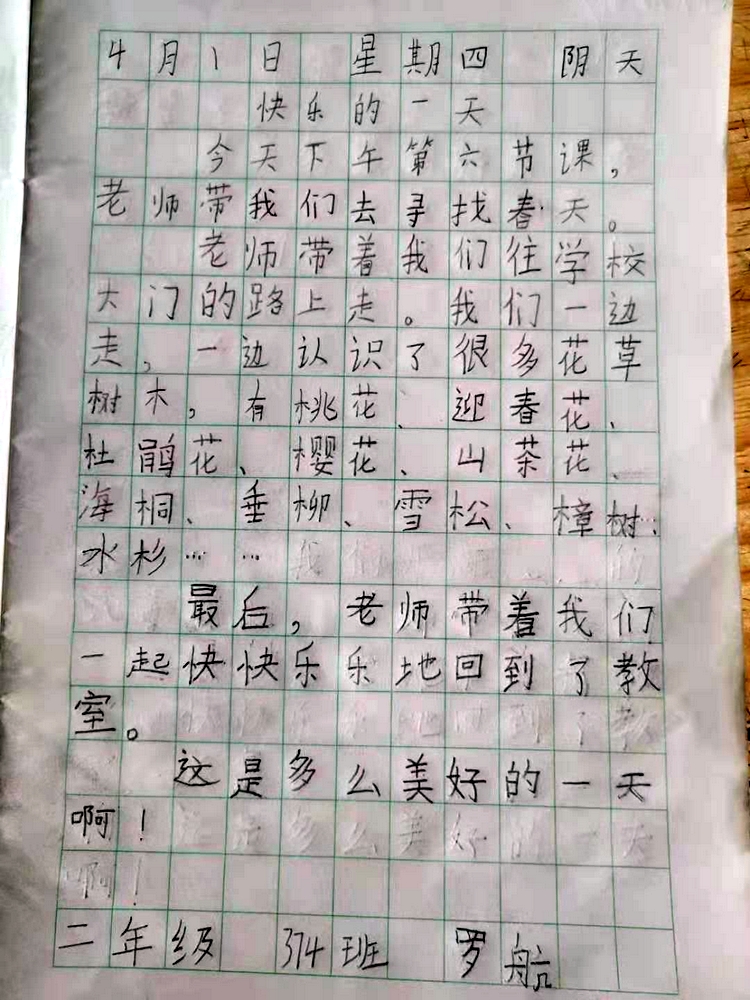 4月1日 星期四 阴天
快乐的一天
今天下午第六节课，
老师带我们去寻找春天。
老师带着我们往学校
大门的路上走。我们一边
走，一边认识了很多花草
树木，有桃花、迎春花、
杜鹃花、樱花、山茶花、
海桐、垂柳、雪松、樟树、
水杉……
最后，老师带着我们
一起快快乐乐地回到了教
室。
这是多么美好的一天
啊！
二年级 374班 罗航